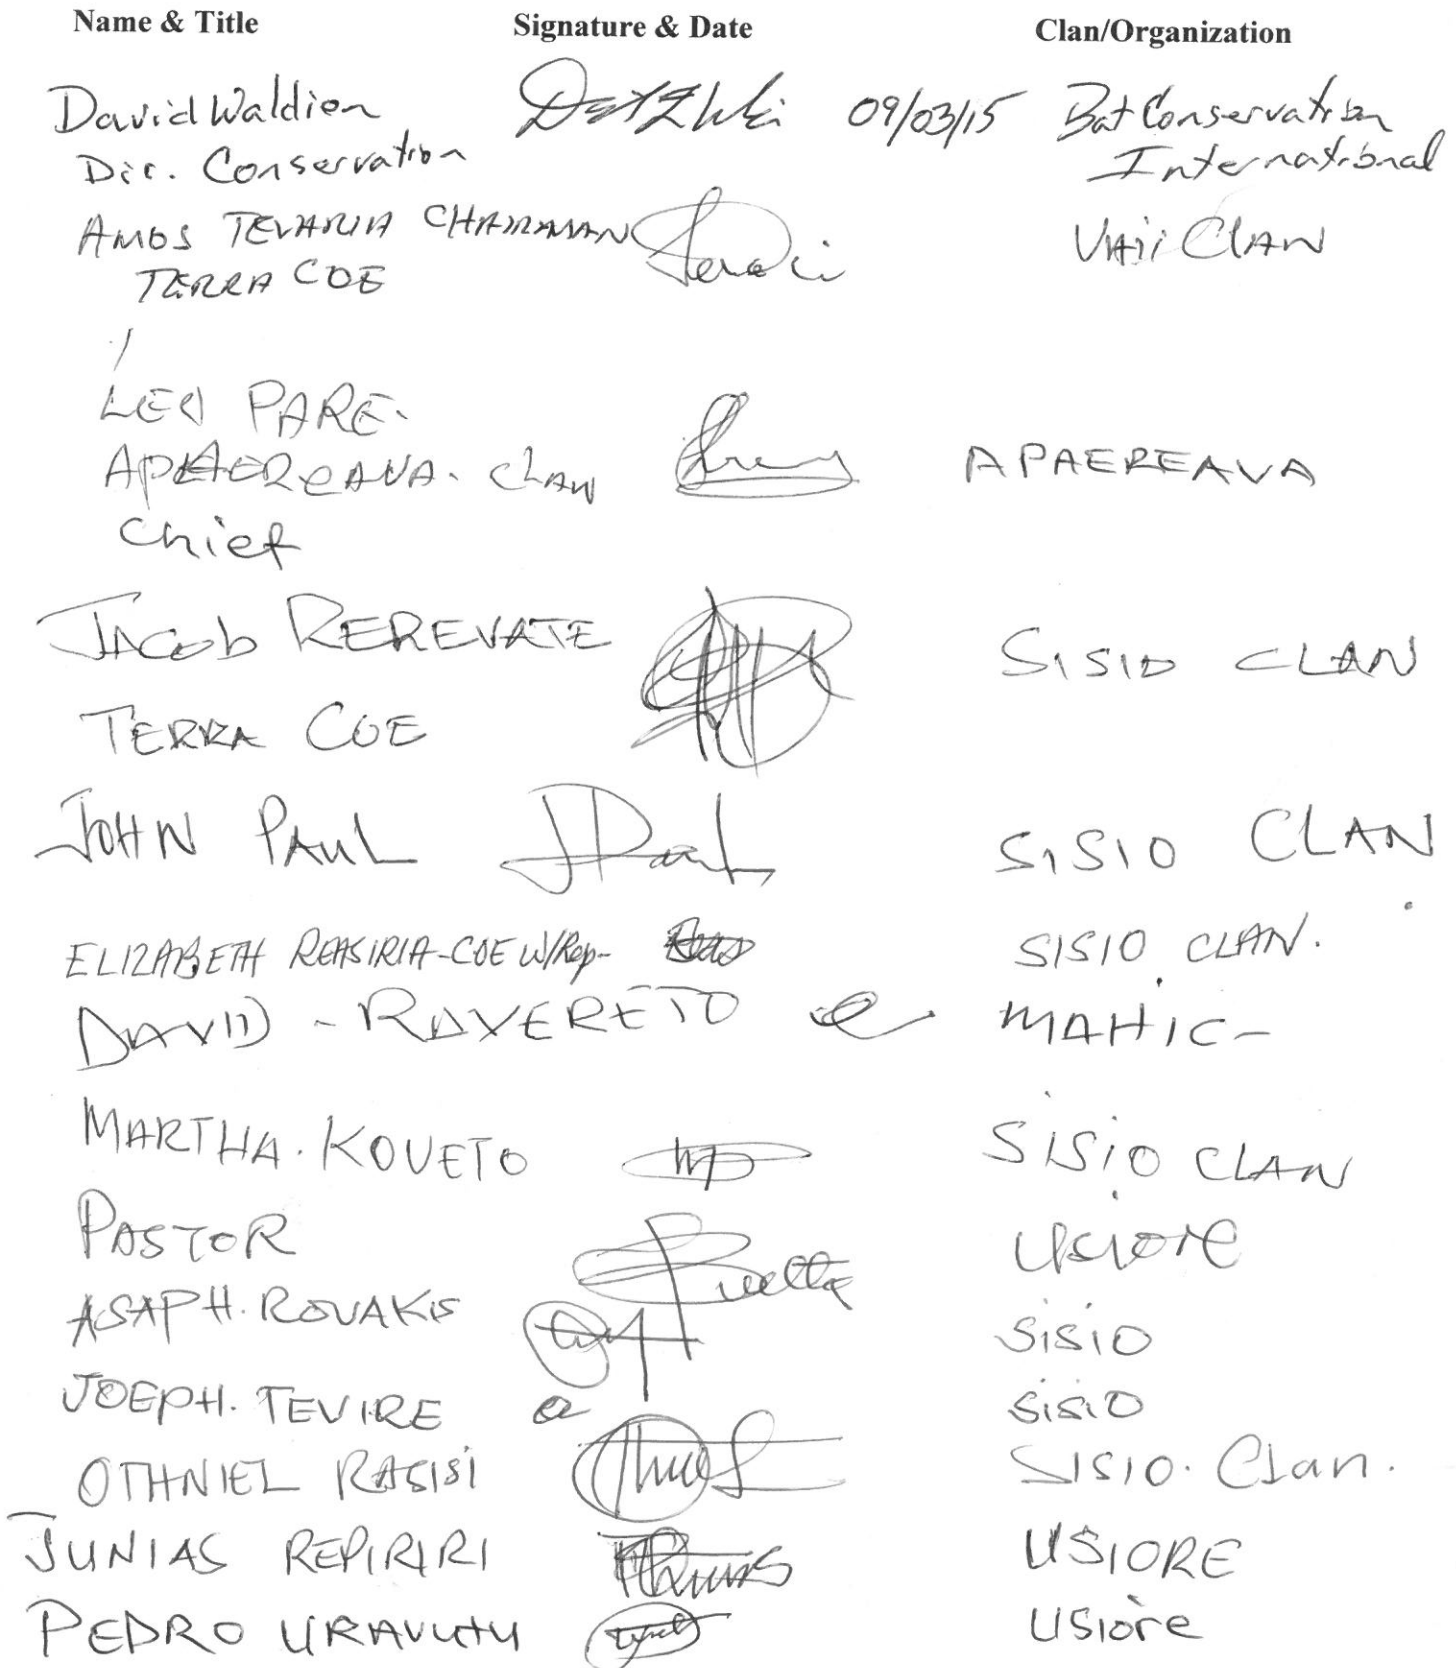 Name & Title Signature & Date Clan/Organization
David Waldien 09/03/15 Bat Conservation
Dir. Conservation International
AMOS TEVARIA CHAIRMAN VAii CLAN
TERRA COE
LEO PARE.
APAEREAVA. CLAN APAEREAVA
Chief
JACob REREVATE SISIO CLAN
TERRA COE
JOHN PAUL SISIO CLAN
ELIZABETH REASIRIA-COE W/Rep- SISIO CLAN.
DAVID - RAVERETO MAHIC-
MARTHA. KOVETO SISiO CLAN
PASTOR Usiore
ASAPH. ROVAKIS SISIO
JOEPH. TEVIRE SISIO
OTHNIEL RASISI SISIO. Clan.
JUNIAS REPIRIRI USIORE
PEDRO URAVUTU USiore